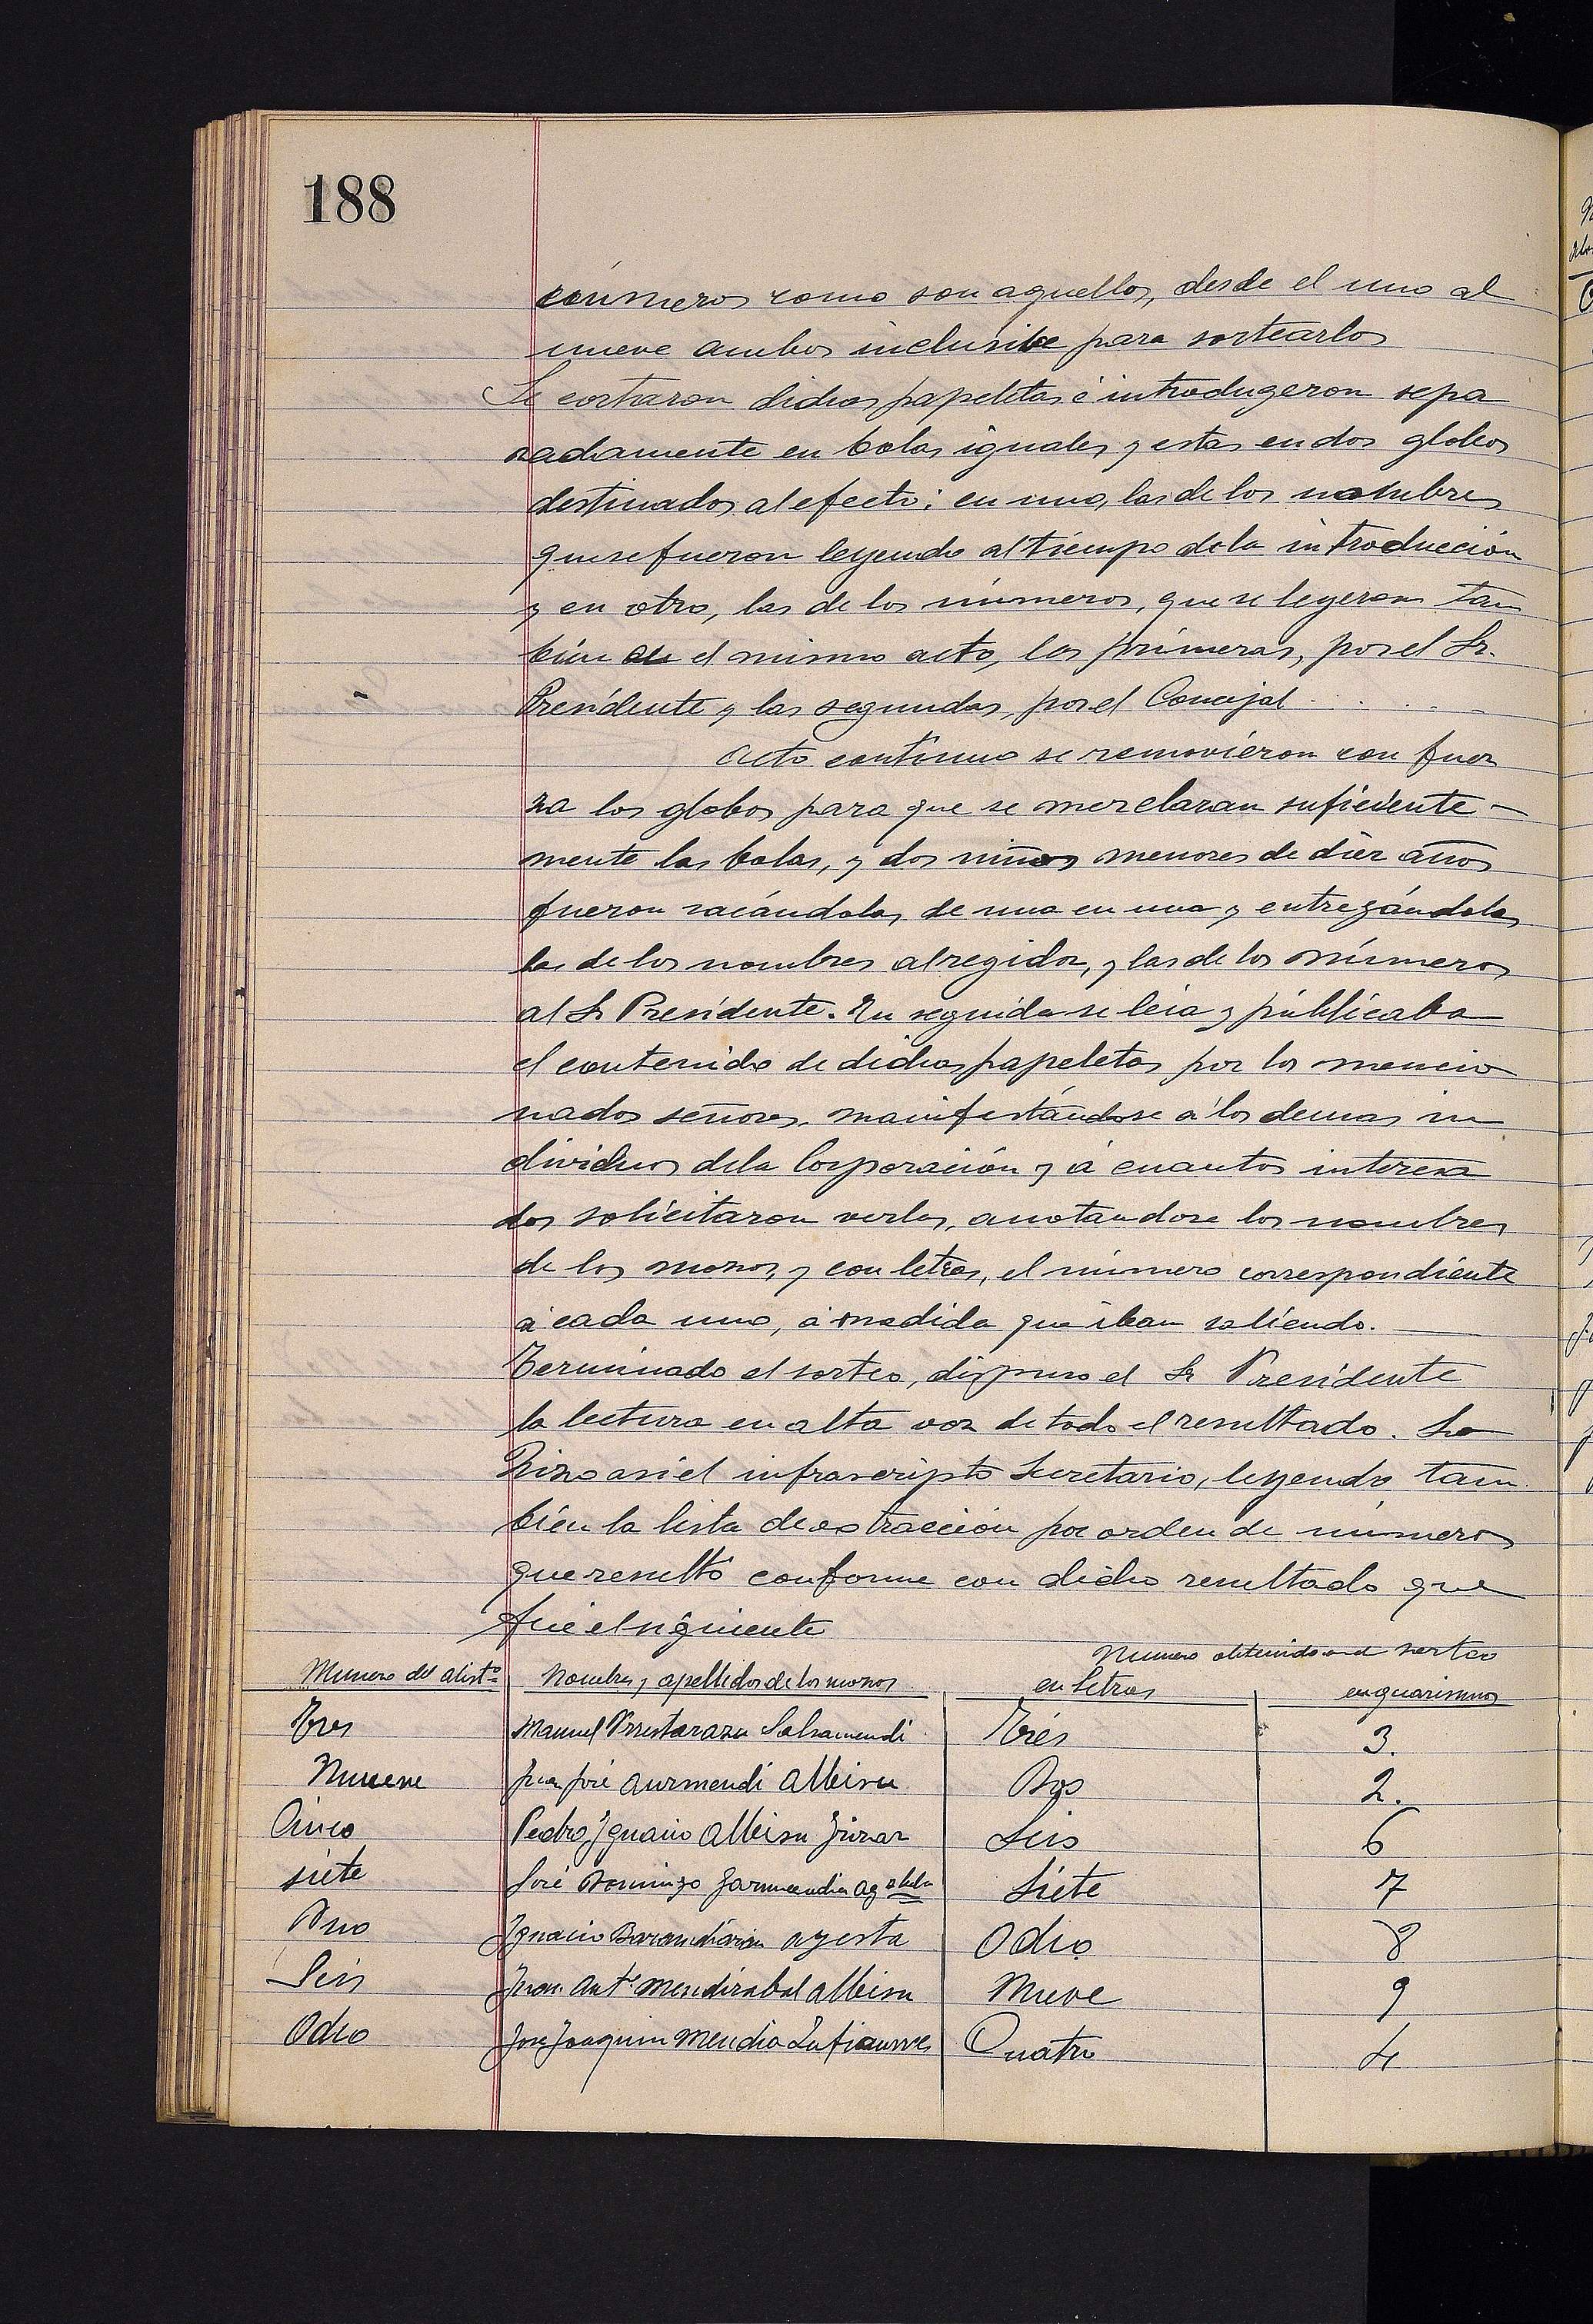 188
números como son aquellos, desde el uno al
nueve ambos inclusibe para sortearlos
Se cortaron dichas papeletas é introdugeron sepa
radamente en bolas iguales y estas en dos globos
destinados al efecto: en uno, las de los nombres
que se fueron leyendo al tiempo de la introducción
y en otro, las de los números, que se leyeron tam
bien en el mismo acto, las primeras, por el Sr.
Presidente y las segundas, por el Concejal . . . . .
Acto continuo se removieron con fuer
za los globos para que se mezclaran suficiente-
mente las bolas, y dos niños menores de diez años
fueron sacándolas, de una en una y entregándolas
las de los nombres al regidor, y las de los números
al Sr Presidente. En seguida se leia y públicaba
el contenido de dichas papeletas por los mencio
nados señores, manifestándose á los demas in
dividuos de la Corporación y á cuantos interesa
dos solicitaron verlas, anotandose los nombres
de los mozos, y con letras, el número correspondiente
á cada uno, á medida que iban saliendo.
Terminado el sorteo, dispuso el Sr Presidente
la lectura en alta voz de todo el resultado. Lo
hizo asi el infrascripto Secretario, leyendo tam
bien la lista de extracción por orden de números
que resultó conforme con dicho resultado que
fué el siguiente
Numero obtenido en el sorteo
Numero del alistº Nombres y apellidos de los mozos en letras en guarismos
Tres Manuel Urrestarazu Salsamendi Trés 3.
Nueve Juan José Aurmendi Albisu Dos 2.
Cinco Pedro Ygnacio Albisu Seis 6
siete José Domingo Garmendia Siete 7
Uno Ygnacio Barandiarán Ocho 8
Seis Juan Antº Mendizabal Albisu Nueve 9
Ocho José Joaquin Mendia Cuatro 4